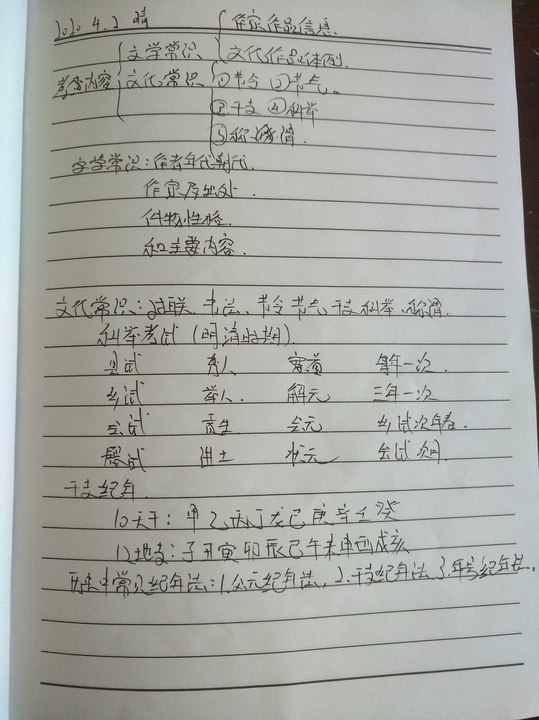 2020.4.2 晴 作家作品信息.
文学常识 文代作品体例.
考查内容 文化常识 ①节令 ②节气.
③干支 ④科举
⑤称谓.
文学常识:作者年代朝代.
作家及出处.
人物性格.
和主要内容.
文代常识:对联 书法、节令节气干支科举、称谓.
科举考试(明清时期).
县试 秀人 案首 每年一次.
乡试 举人. 解元 三年一次
会试 贡生 会元 乡试次年春.
殿试 进士 状元 会试次月.
干支纪年.
10天干:甲乙丙丁戊己庚辛壬癸
12地支:子丑寅卯辰巳午未申酉戌亥
历史中常见纪年法:1.公元纪年法,2.干支纪年法 3.年号纪年法.